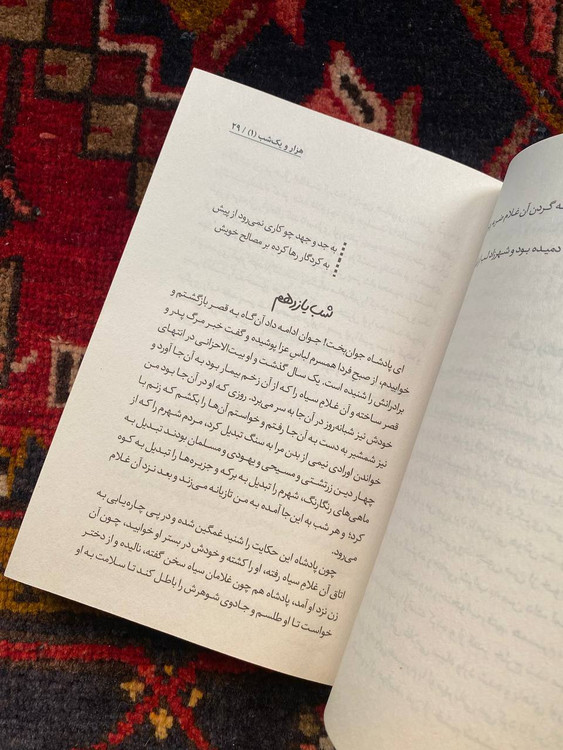 هزار و یک‌شب (۱) / ۲۹
به جد و جهد چو کاری نمی‌رود از پیش
به کردگار رها کرده بر مصالح خویش
شب یازدهم
ای پادشاه جوان‌بخت! جوان ادامه داد آن‌گاه به قصر بازگشتم و
خوابیدم، از صبح فردا همسرم لباس عزا پوشیده و گفت خبر مرگ پدر و
برادرانش را شنیده است. یک سال گذشت و او بیت‌الاحزانی در انتهای
قصر ساخته و آن غلام سیاه را که از آن زخم بیمار بود به آن‌جا آورد و
خودش نیز شبانه‌روز در آن‌جا به سر می‌برد. روزی که او در آن‌جا بود من
نیز شمشیر به دست به آن‌جا رفتم و خواستم آن‌ها را بکشم که زنم با
خواندن اورادی نیمی از بدن مرا به سنگ تبدیل کرد، مردم شهرم را که از
چهار دین زرتشتی و مسیحی و یهودی و مسلمان بودند تبدیل به
ماهی‌های رنگارنگ، شهرم را تبدیل به برکه و جزیره‌ها را تبدیل به کوه
کرد؛ و هر شب به این‌جا آمده به من تازیانه می‌زند و بعد نزد آن غلام
می‌رود.
چون پادشاه این حکایت را شنید غمگین شده و در پی چاره‌یابی به
اتاق آن غلام سیاه رفته، او را کشته و خودش در بستر او خوابید، چون آن
زن نزد او آمد، پادشاه هم چون غلامان سیاه سخن گفته، نالیده و از دختر
خواست تا او طلسم و جادوی شوهرش را باطل کند تا سلامت به او
گردن آن غلام
دمیده بود و شهرزاد